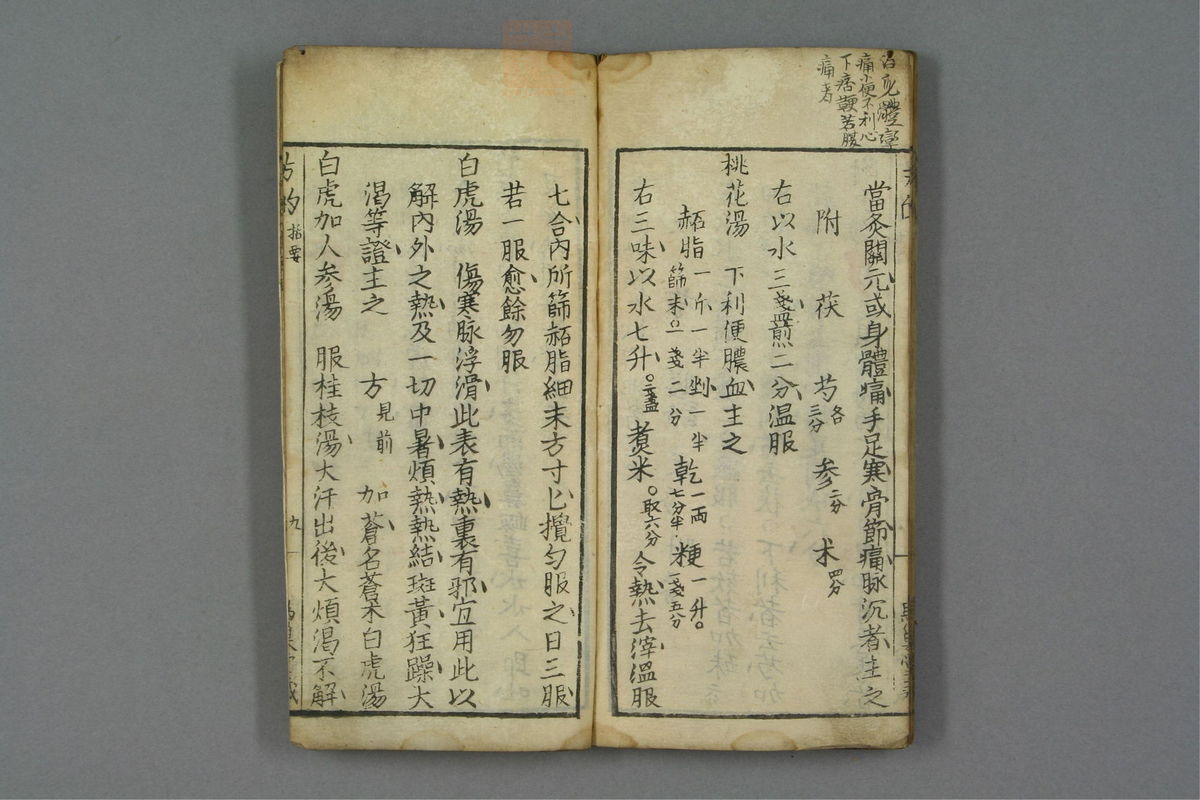 體攣
痛小便不利心
下痞鞕若腹
痛者
當灸關元或身體痛手足寒骨節痛脉沉者主之
附 茯 芍各三分 參二分 朮四分
右以水三盞煎二分温服
桃花湯 下利便膿血主之
䂠脂一斤一半剉一半篩末〇一盞二分 乾一兩七分半 粳一升。一盞五分
右三味以水七升。三盞煑米。取六分令熱去滓温服
七合内所篩䂠脂細末方寸匕攪匀服之日三服
若一服愈餘勿服
白虎湯 傷寒脉浮滑此表有熱裏有邪宜用此以
解內外之熱及一切中暑煩熱熱結斑黃狂躁大
渴等證主之 方見前 加蒼名蒼朮白虎湯
白虎加人参湯 服桂枝湯大汗出後大煩渴不解
方的 指要 九